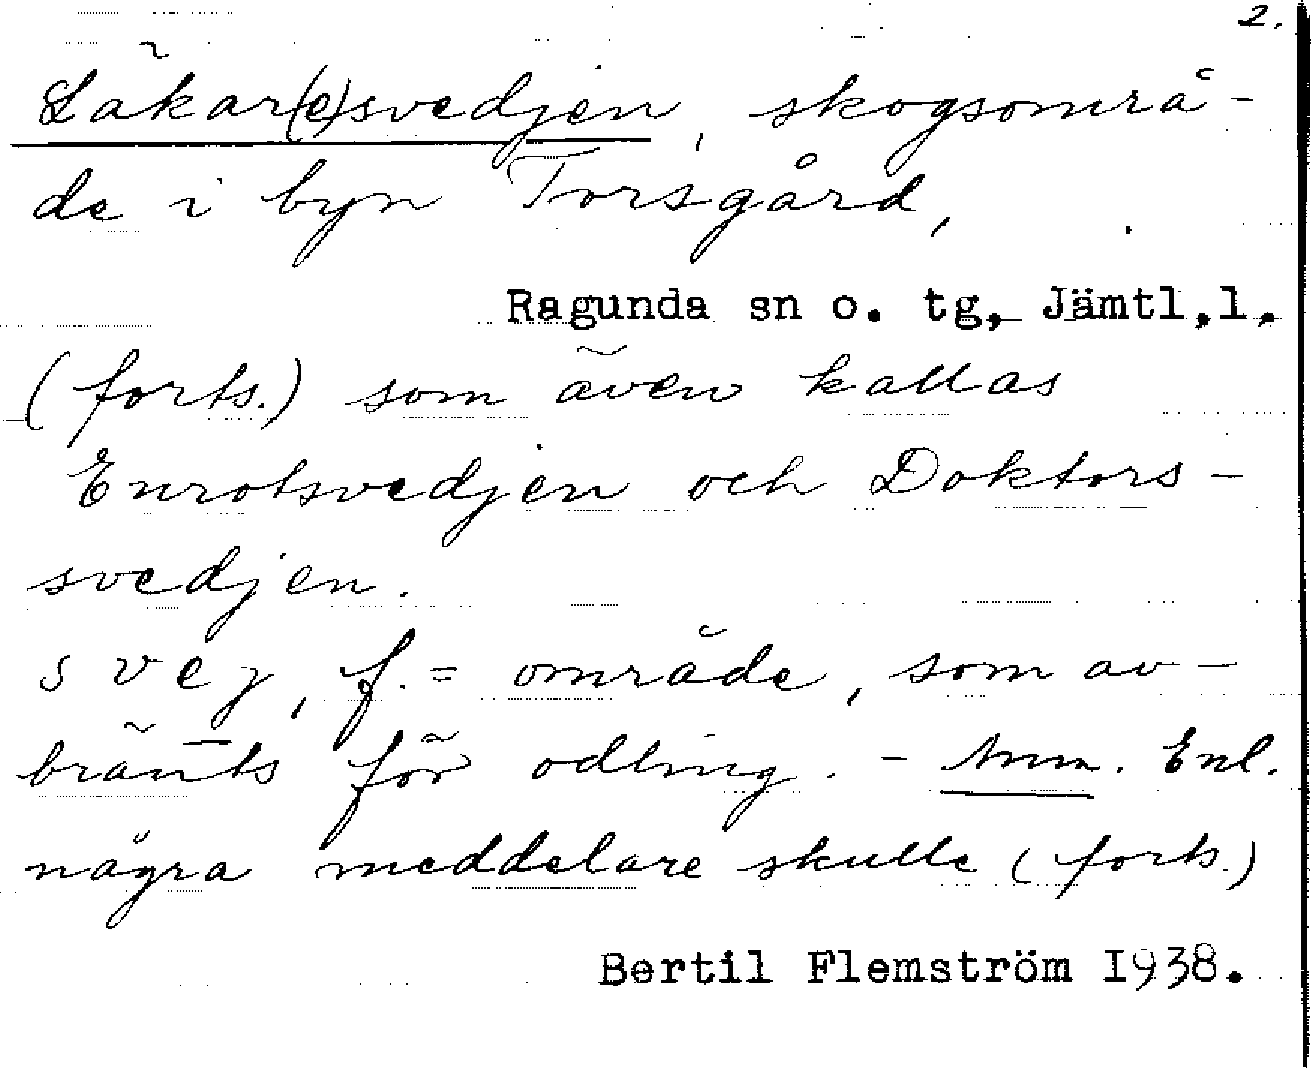 2.
Läkar(e)svedjen, skogsområ-
de i byn Torsgård,
Ragunda sn o. tg, Jämtl.l.
(forts.) som även kallas
Enrotsvedjen och Doktors-
svedjen.
svej, f. = område, som av-
bränts för odling. - Anm. Enl.
några meddelare skulle (forts.)
Bertil Flemström 1938.